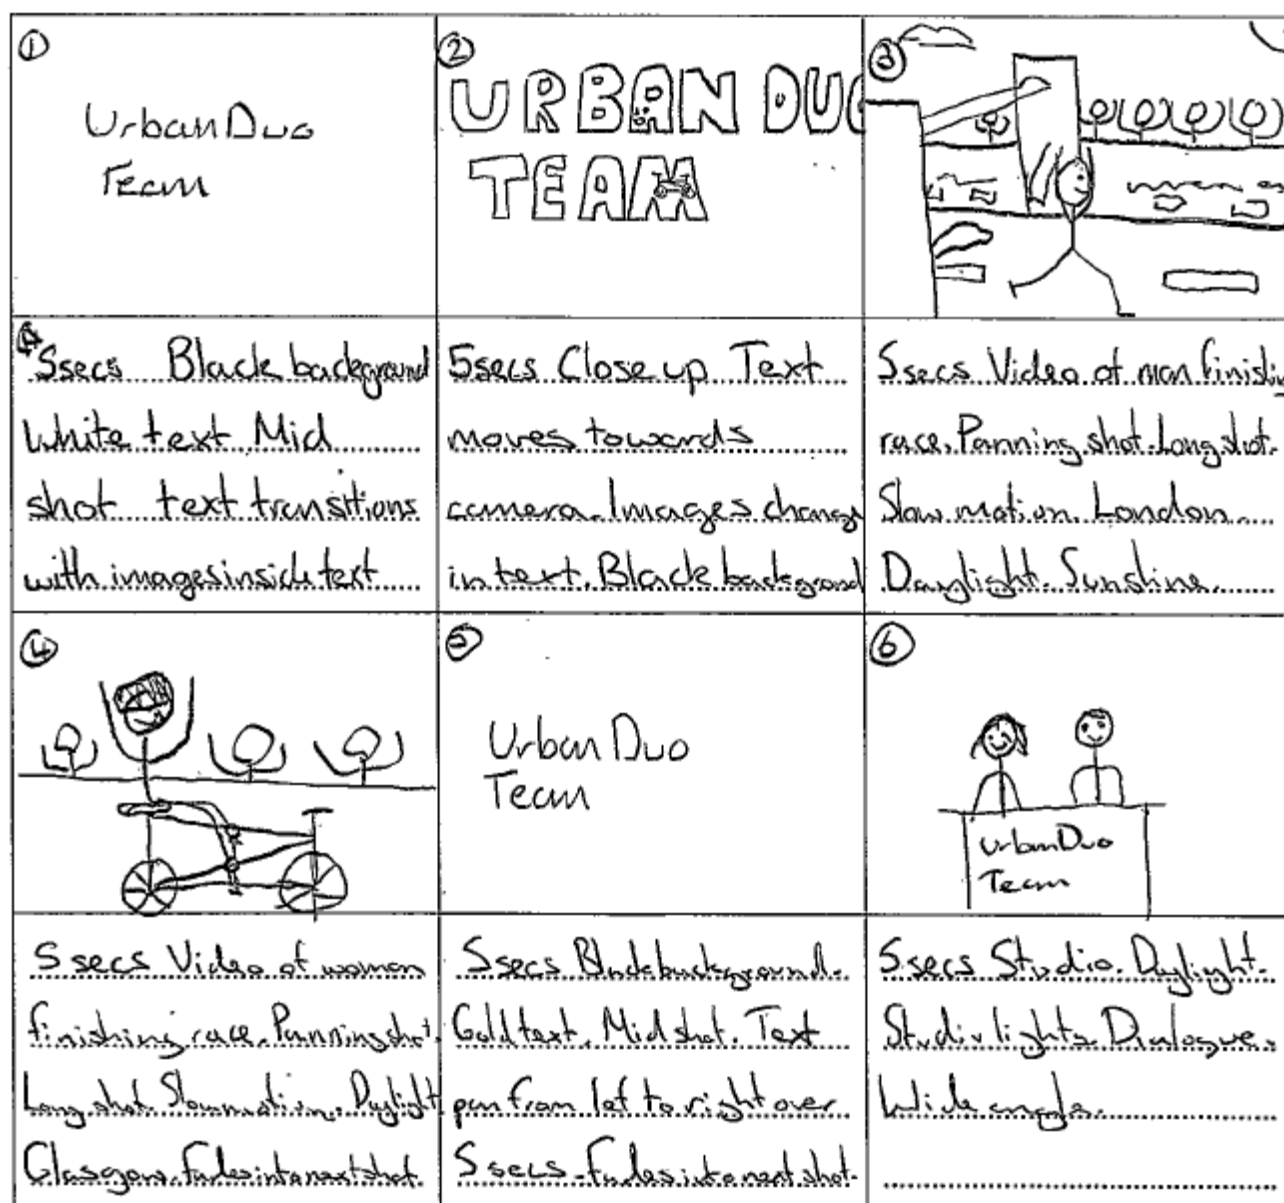 1
Urban Duo
Team
2
URBAN DUO
TEAM
3
5secs Black background
White text Mid
shot text transitions
with images inside text
5secs Close up Text
moves towards
camera. Images change
in text. Black background
5secs Video of man finishing
race. Panning shot. Long shot.
Slow motion. London.
Daylight. Sunshine.
4
5
Urban Duo
Team
6
Urban Duo
Team
5 secs Video of woman
finishing race. Panning shot.
Long shot. Slow motion. Daylight
Glasgow. Fades into next shot.
5secs Black background.
Gold text. Mid shot. Text
pan from left to right over
5 secs. Fades into next shot.
5secs Studio. Daylight.
Studio lights. Dialogue.
Wide angle.